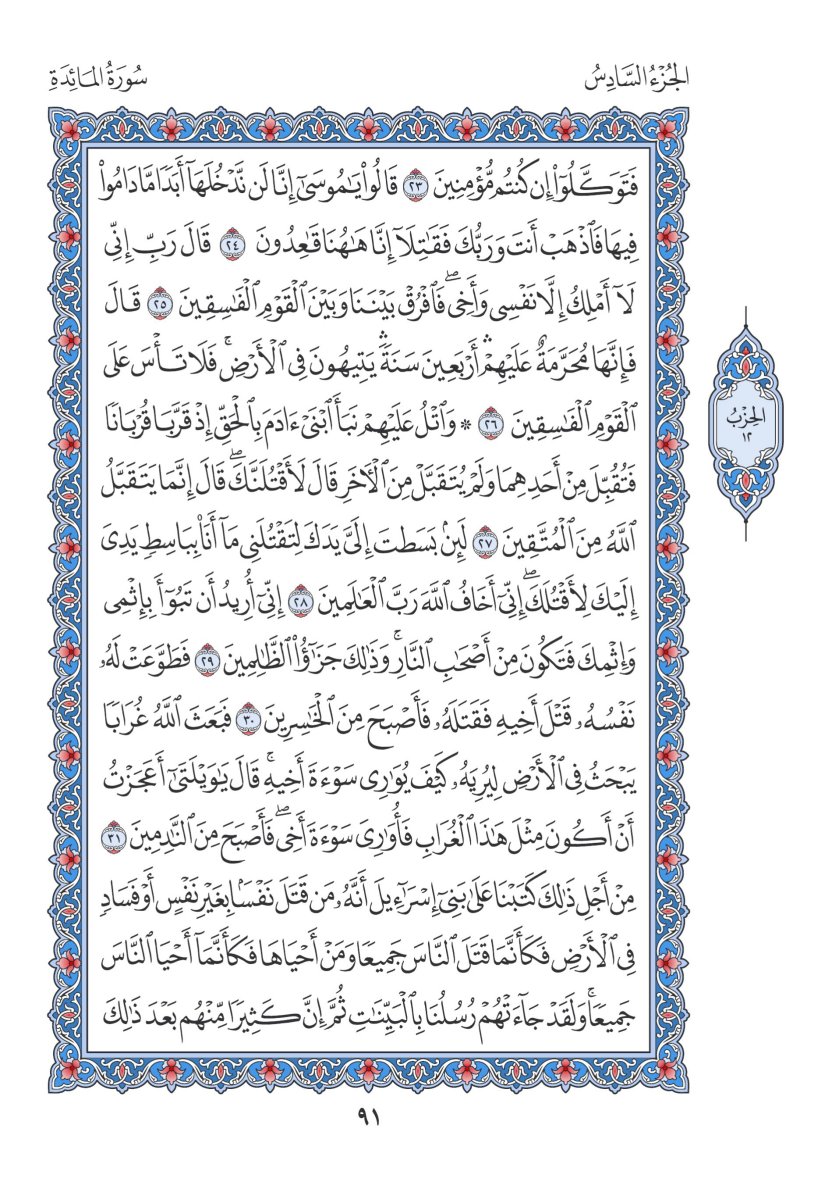 الجُزْءُ السَّادِسُ
سُورَةُ المَائِدَةِ
فَتَوَكَّلُوٓاْ إِن كُنتُم مُّؤْمِنِينَ ٢٣ قَالُواْ يَٰمُوسَىٰٓ إِنَّا لَن نَّدْخُلَهَآ أَبَدٗا مَّا دَامُواْ
فِيهَا فَٱذْهَبْ أَنتَ وَرَبُّكَ فَقَٰتِلَآ إِنَّا هَٰهُنَا قَٰعِدُونَ ٢٤ قَالَ رَبِّ إِنِّي
لَآ أَمْلِكُ إِلَّا نَفْسِي وَأَخِيۖ فَٱفْرُقْ بَيْنَنَا وَبَيْنَ ٱلْقَوْمِ ٱلْفَٰسِقِينَ ٢٥ قَالَ
فَإِنَّهَا مُحَرَّمَةٌ عَلَيْهِمْۛ أَرْبَعِينَ سَنَةٗۛ يَتِيهُونَ فِي ٱلْأَرْضِۚ فَلَا تَأْسَ عَلَى
ٱلْقَوْمِ ٱلْفَٰسِقِينَ ٢٦ * وَٱتْلُ عَلَيْهِمْ نَبَأَ ٱبْنَيْ ءَادَمَ بِٱلْحَقِّ إِذْ قَرَّبَا قُرْبَانٗا
فَتُقُبِّلَ مِنْ أَحَدِهِمَا وَلَمْ يُتَقَبَّلْ مِنَ ٱلْأٓخَرِ قَالَ لَأَقْتُلَنَّكَۖ قَالَ إِنَّمَا يَتَقَبَّلُ
ٱللَّهُ مِنَ ٱلْمُتَّقِينَ ٢٧ لَئِنۢ بَسَطتَ إِلَيَّ يَدَكَ لِتَقْتُلَنِي مَآ أَنَا۠ بِبَاسِطٖ يَدِيَ
إِلَيْكَ لِأَقْتُلَكَۖ إِنِّيٓ أَخَافُ ٱللَّهَ رَبَّ ٱلْعَٰلَمِينَ ٢٨ إِنِّيٓ أُرِيدُ أَن تَبُوٓأَ بِإِثْمِي
وَإِثْمِكَ فَتَكُونَ مِنْ أَصْحَٰبِ ٱلنَّارِۚ وَذَٰلِكَ جَزَٰٓؤُاْ ٱلظَّٰلِمِينَ ٢٩ فَطَوَّعَتْ لَهُۥ
نَفْسُهُۥ قَتْلَ أَخِيهِ فَقَتَلَهُۥ فَأَصْبَحَ مِنَ ٱلْخَٰسِرِينَ ٣٠ فَبَعَثَ ٱللَّهُ غُرَابٗا
يَبْحَثُ فِي ٱلْأَرْضِ لِيُرِيَهُۥ كَيْفَ يُوَٰرِي سَوْءَةَ أَخِيهِۚ قَالَ يَٰوَيْلَتَىٰٓ أَعَجَزْتُ
أَنْ أَكُونَ مِثْلَ هَٰذَا ٱلْغُرَابِ فَأُوَٰرِيَ سَوْءَةَ أَخِيۖ فَأَصْبَحَ مِنَ ٱلنَّٰدِمِينَ ٣١
مِنْ أَجْلِ ذَٰلِكَ كَتَبْنَا عَلَىٰ بَنِيٓ إِسْرَٰٓءِيلَ أَنَّهُۥ مَن قَتَلَ نَفْسَۢا بِغَيْرِ نَفْسٍ أَوْ فَسَادٖ
فِي ٱلْأَرْضِ فَكَأَنَّمَا قَتَلَ ٱلنَّاسَ جَمِيعٗا وَمَنْ أَحْيَاهَا فَكَأَنَّمَآ أَحْيَا ٱلنَّاسَ
جَمِيعٗاۚ وَلَقَدْ جَآءَتْهُمْ رُسُلُنَا بِٱلْبَيِّنَٰتِ ثُمَّ إِنَّ كَثِيرٗا مِّنْهُم بَعْدَ ذَٰلِكَ
الحِزْبُ
١٢
٩١